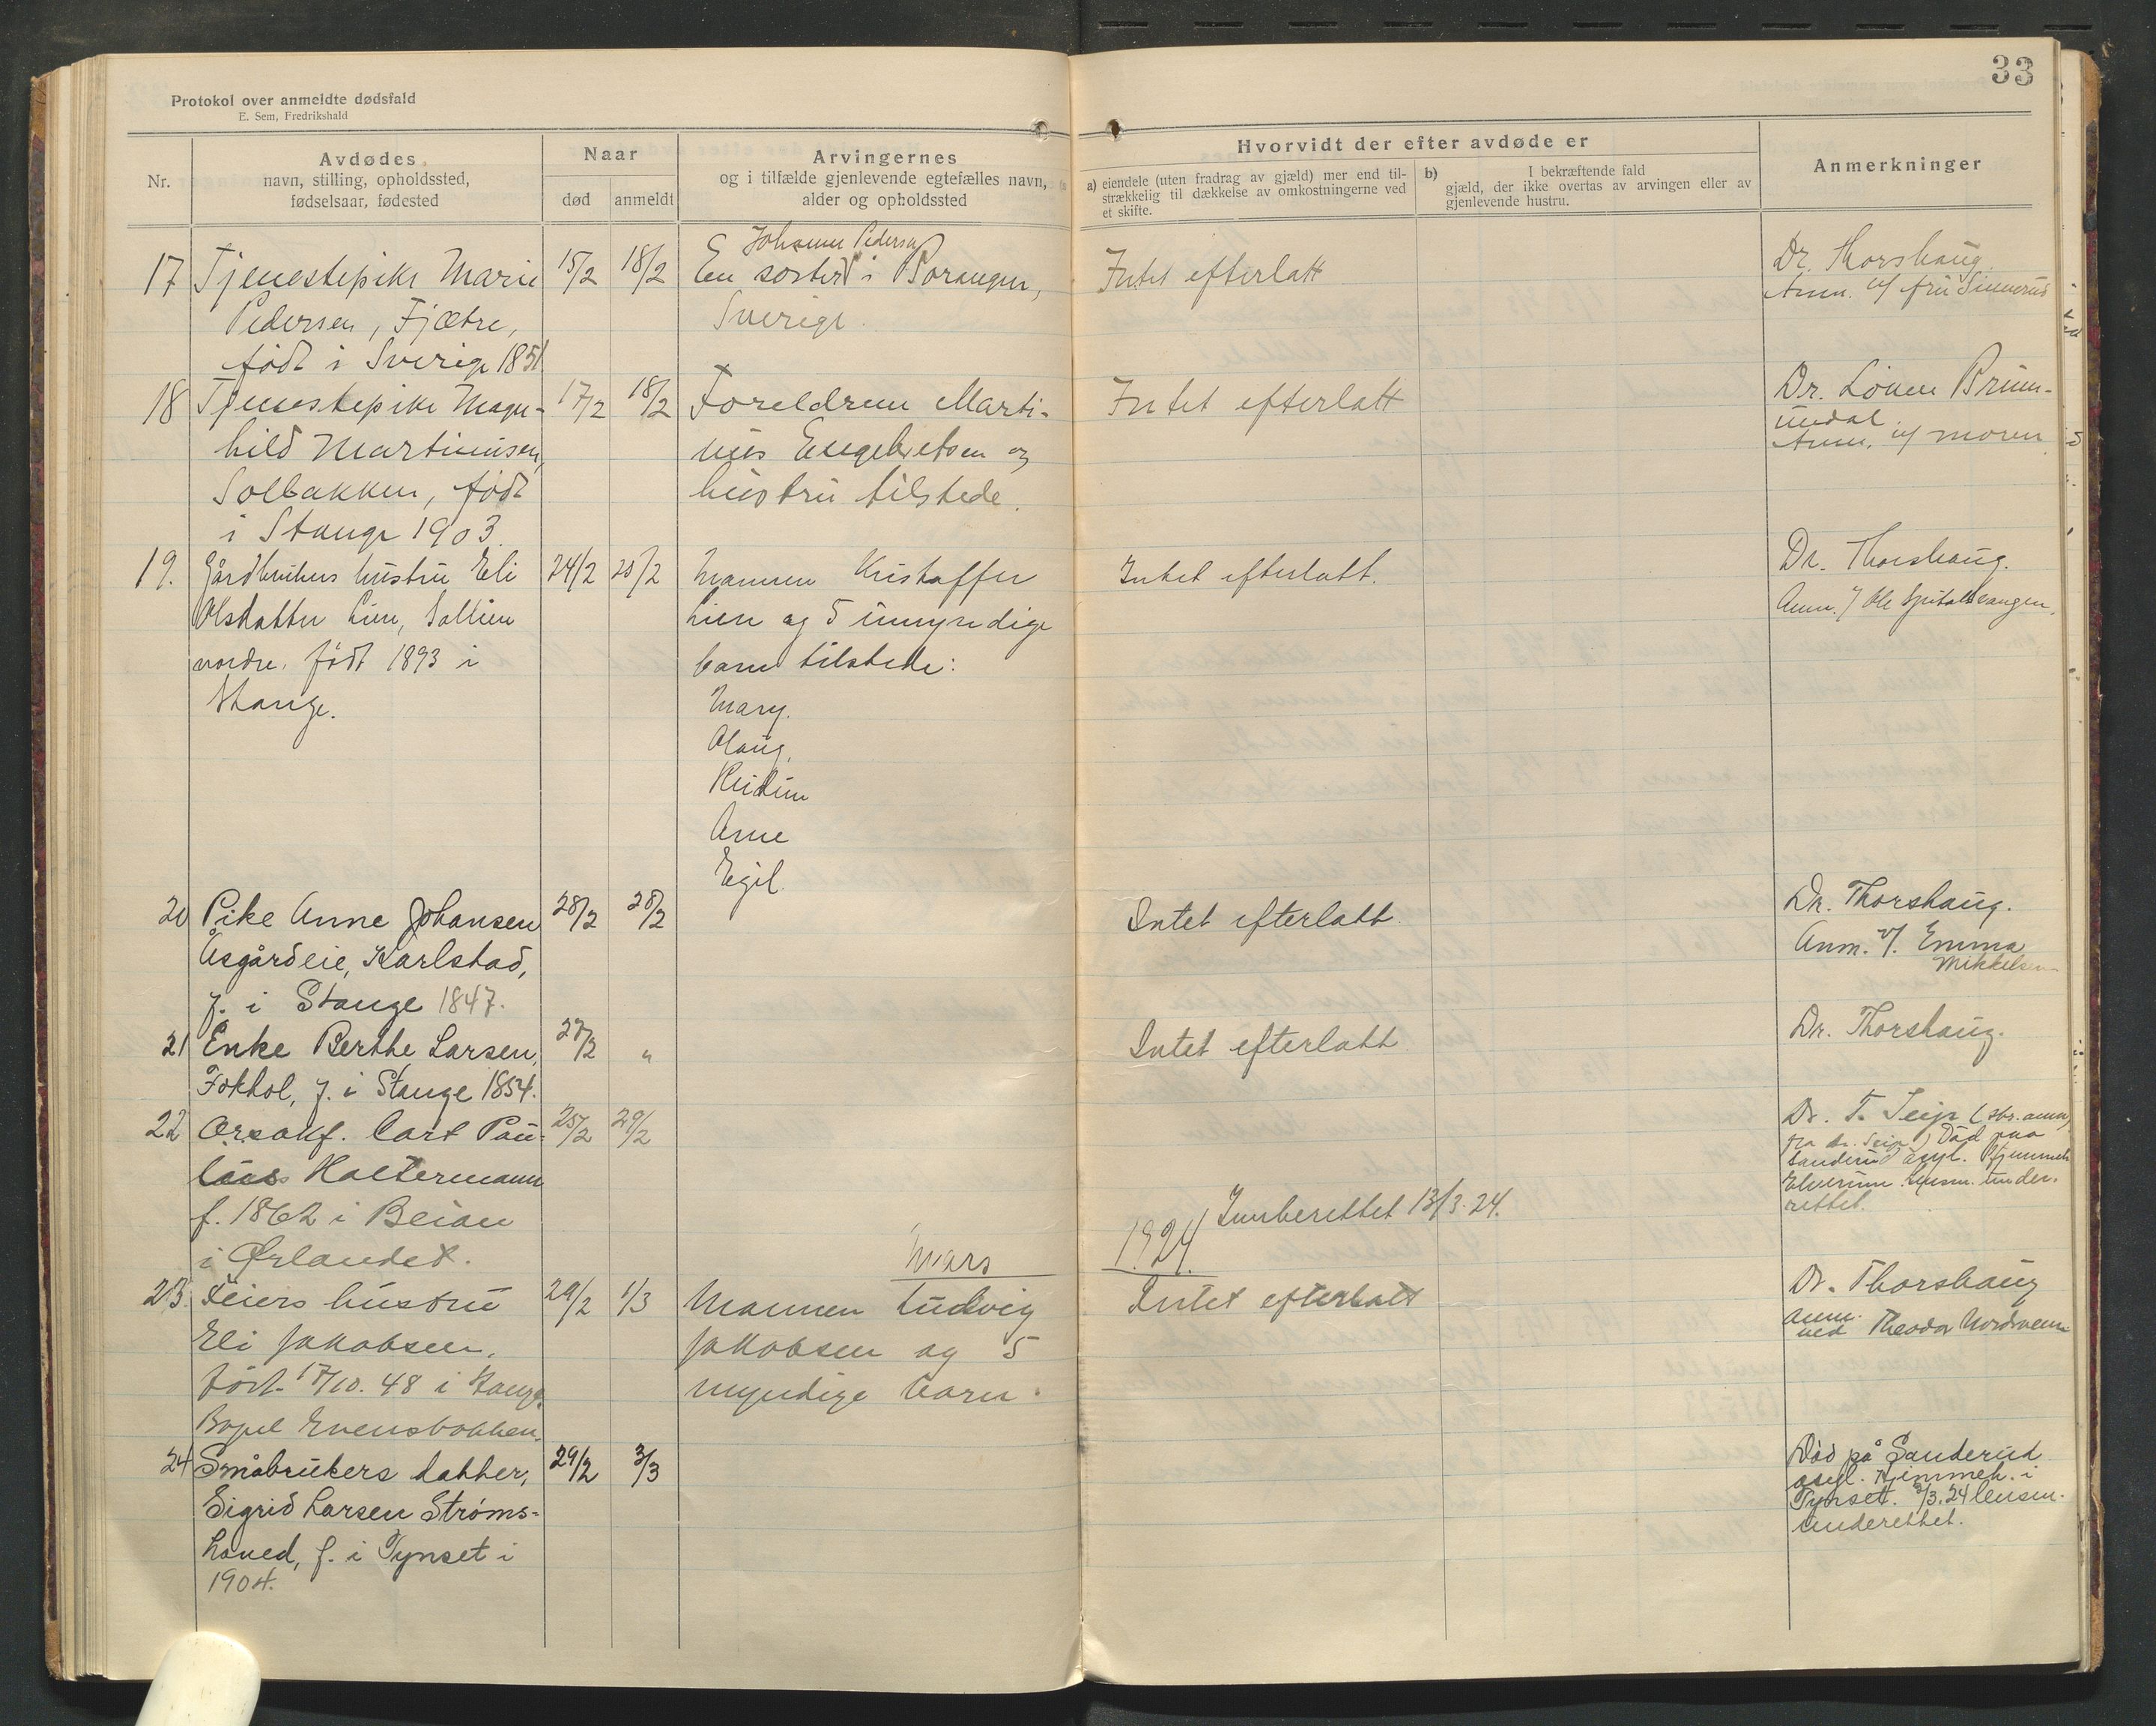 33
Protokol over anmeldte dødsfald
E. Sem, Fredrikshald
Nr.
Avdødes
navn, stilling, opholdssted,
fødselsaar, fødested
Naar
død
anmeldt
Arvingernes
og i tilfælde gjenlevende egtefælles navn,
alder og opholdssted
Hvorvidt der efter avdøde er
a) eiendele (uten fradrag av gjæld) mer end til-
strækkelig til dækkelse av omkostningerne ved
et skifte.
b) I bekræftende fald
gjæld, der ikke overtas av arvingen eller av
gjenlevende hustru.
Anmerkninger
17
Tjenestepike Marie
Pedersen, Fjætre,
født i Sverige 1851
15/2
18/2
Pedersen
En søster i
Sverige.
Intet efterlatt
Dr. Thorshaug.
Anm. v/ fru
18
Tjenestepike Magn-
hild Martinusen,
Solbakken, født
i Stange 1903.
17/2
18/2
Foreldrene Marti-
nus Engebretsen og
hustru tilstede.
Intet efterlatt
Dr. Løken Brum-
unddal.
Anm. v/ moren
19.
Gårdbrukers hustru Eli
Olsdatter Lien, Saltlien
nordre, født 1893 i
Stange.
24/2
25/2
Mannen Kristoffer
Lien og 5 umyndige
barn tilstede:
Mary.
Olaug,
Arne
Egil.
Intet efterlatt.
Dr. Thorshaug.
Anm. v/ Ole
20
Pike Anne Johansen
Åsgårdeie, Karlstad,
f. i Stange 1847.
28/2
28/2
Intet efterlatt.
Dr. Thorshaug.
Anm. v/. Emma
Mikkelsen
21
Enke Berthe Larsen,
Fokhol, f. i Stange 1854.
27/2
"
Intet efterlatt
Dr. Thorshaug.
22
Carl Pau-
lius Holtermann
f. 1862 i Beian
i Ørlandet.
25/2
29/2
Innberettet 13/3.24.
Dr. T. Seip
fra dr. Seip) Død paa
Sanderud asyl. Hjemmeh.
Elverum. Lensm. under-
rettet.
Mars
1924.
23
Feiers hustru
Eli Jakobsen,
født 17/10. 48 i Stange.
Bopel Evensbakken.
29/2
1/3
Mannen Ludvig
Jakobsen og 5
myndige barn.
Intet efterlatt
Dr. Thorshaug
anm.
ved Theodor
24
Småbrukers datter,
Sigrid Larsen Strøms-
haved, f. i Tynset i
1904.
29/2
3/3
Død på Sanderud
asyl. Hjemmeh. i
Tynset. 3/3.24 lensm.
underettet.